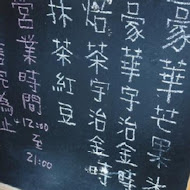 豪華芒果
豪華宇治金時
焙茶宇治金時
抹茶紅豆
營業時間
12:00
至
21:00
為止